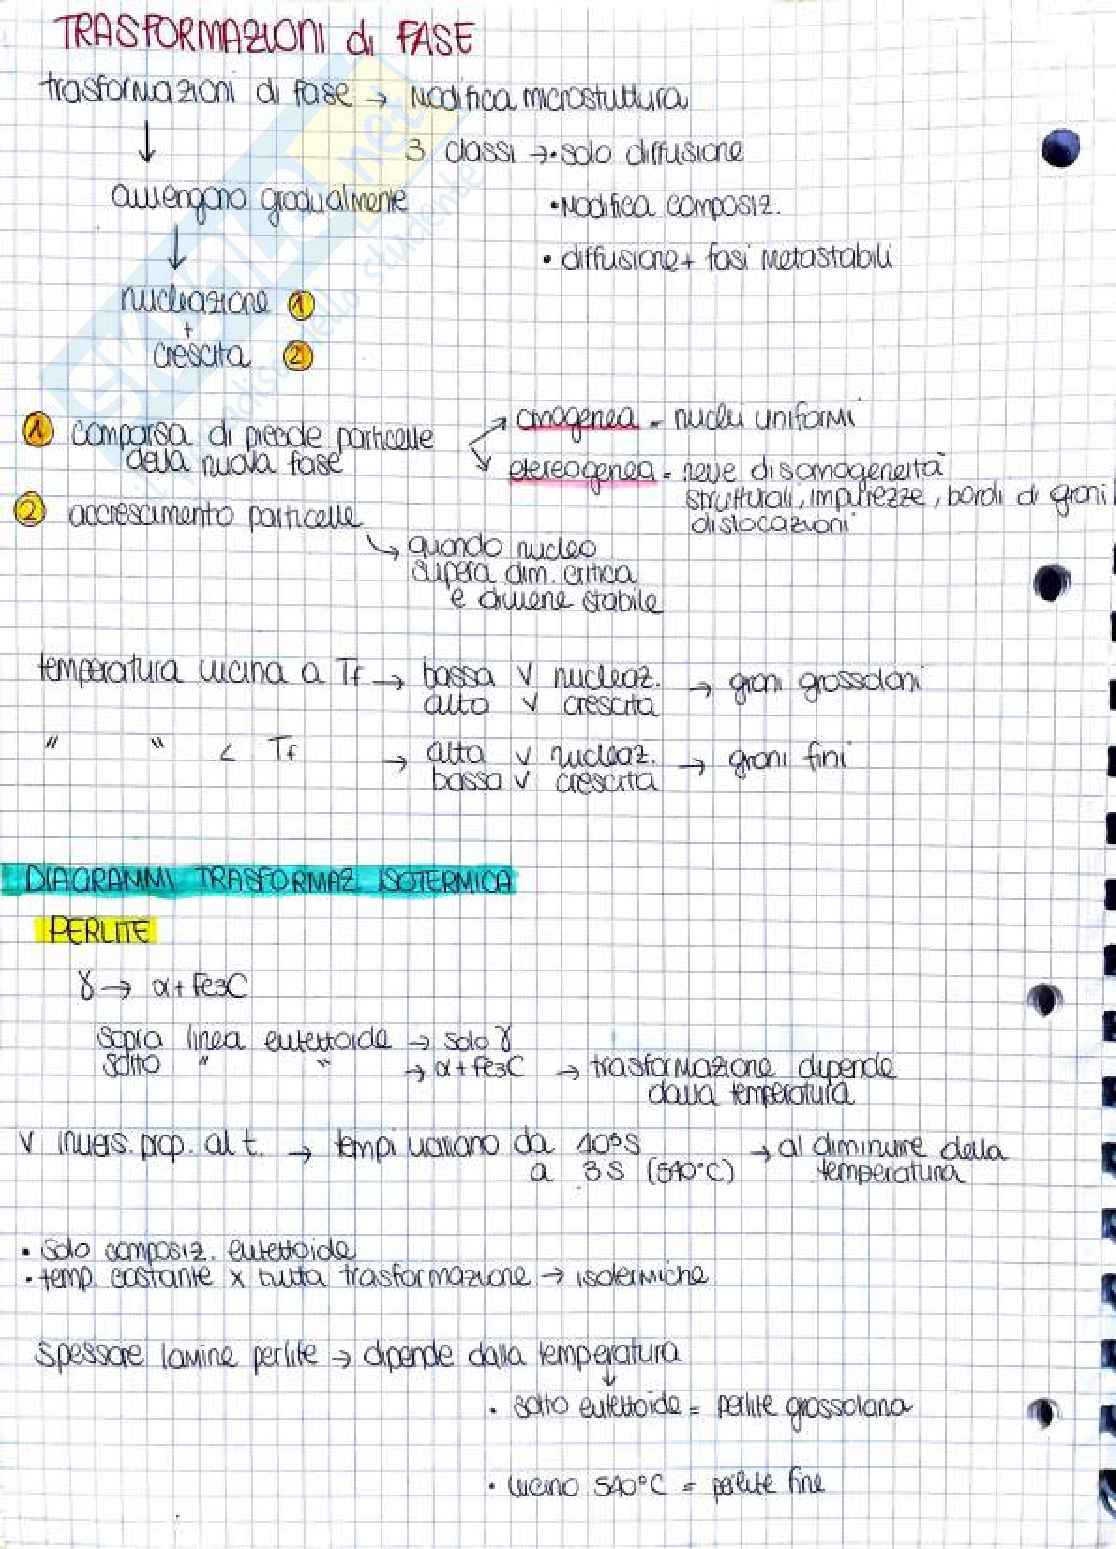 TRASFORMAZIONI di FASE
trasformazioni di fase → Modifica microstuttura
↓
3 classi → • solo diffusione
avvengono gradualmente
• Modifica composiz.
↓
• diffusione + fasi metastabili
nucleazione 1
+
crescita 2
1 comparsa di piccole particelle
della nuova fase
→ omogenea = nuclei uniformi
→ etereogenea = neve disomogeneità
strutturali, impurezze, bordi di grani
dislocazioni
2 accrescimento particelle
→ quando nucleo
supera dim. critica
e diviene stabile
temperatura vicina a Tf → bassa v nucleaz. → grani grossolani
alta v crescita
" " < Tf → alta v nucleaz. → grani fini
bassa v crescita
DIAGRAMMI TRASFORMAZ ISOTERMICA
PERLITE
γ → α + Fe3C
sopra linea eutettoide → solo γ
sotto " " → α + Fe3C → trasformazione dipende
dalla temperatura
v invers. prop. al t. → tempi variano da 10⁵s → al diminuire della
a 3s (540°C) temperatura
• solo composiz. eutettoide
• temp. costante x tutta trasformazione → isotermiche
spessore lamine perlite → dipende dalla temperatura
↓
• sotto eutettoide = perlite grossolana
• vicino 540°C = perlite fine
skuola.net
il paradiso dello studente